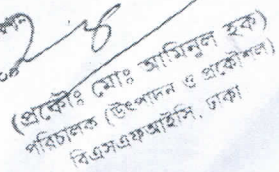 (প্রকৌঃ মোঃ আমিনুল হক)
পরিচালক (উৎপাদন ও প্রকৌশল)
বিএসএফআইসি, ঢাকা